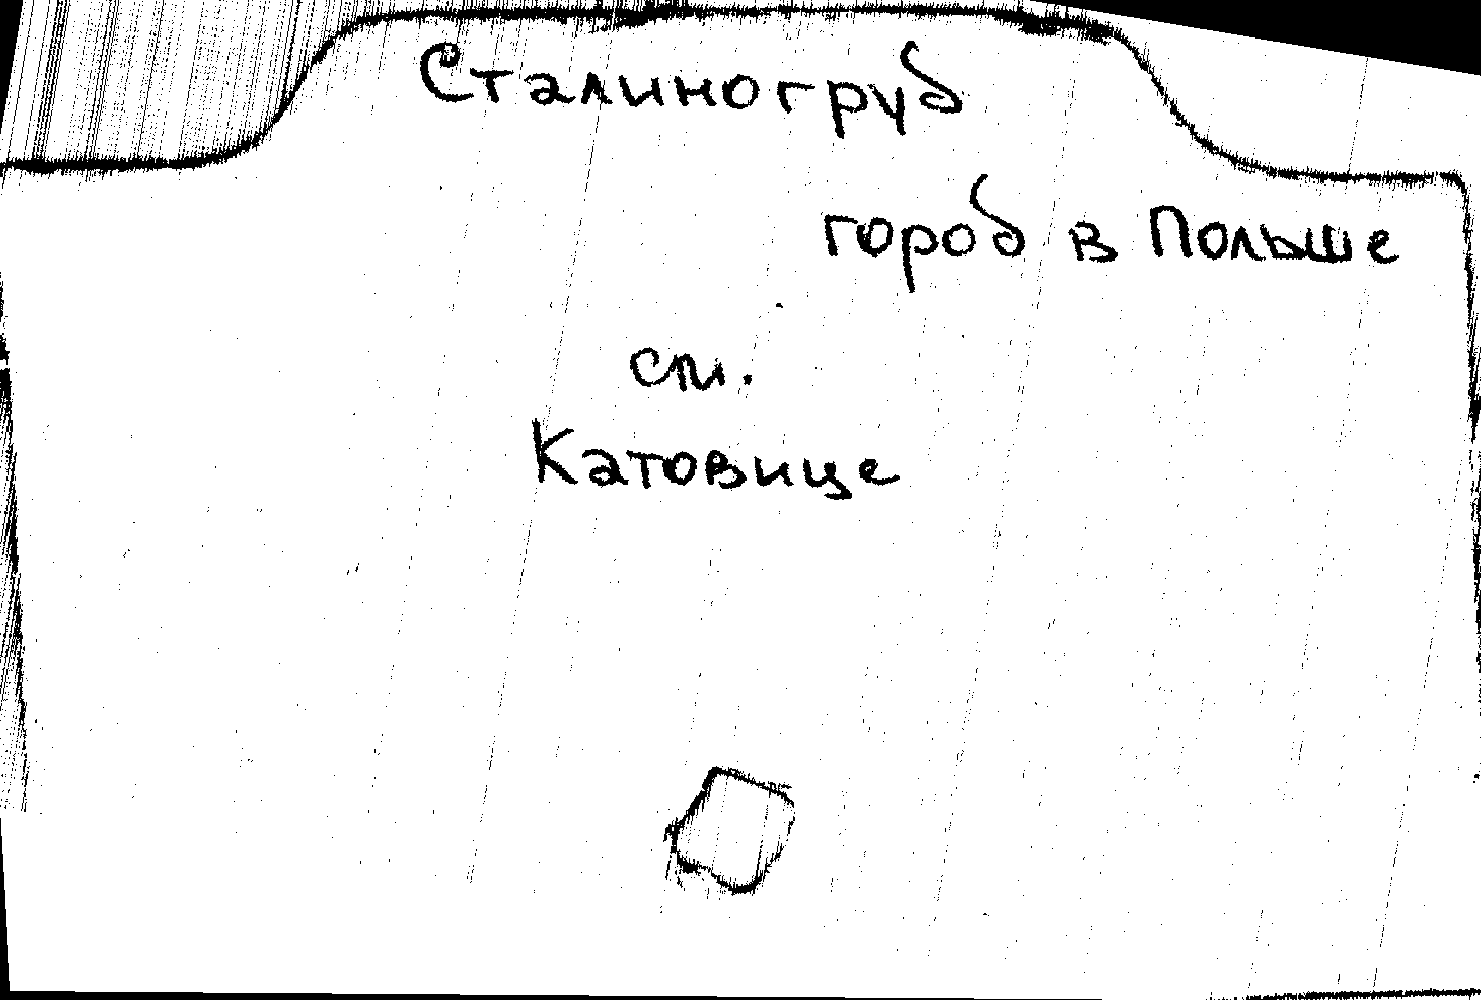 Сталиногруд
город в Польше
см.
Катовице